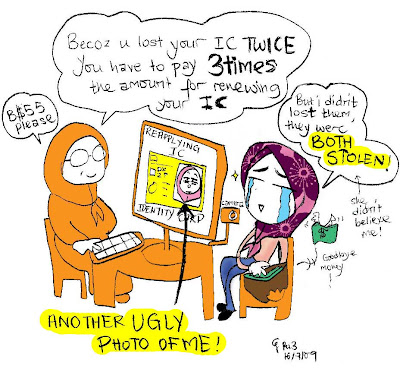 Becoz u lost your IC TWICE
You have to pay 3times
the amount for renewing
your IC
B$55
please
But i didn't
lost them,
they were
BOTH
STOLEN!
REAPPLYING
IC
IDENTITY CARD
CAMERA
she
didn't
believe
me!
$
Goodbye
money!
ANOTHER UGLY
PHOTO OF ME!
16/9/09